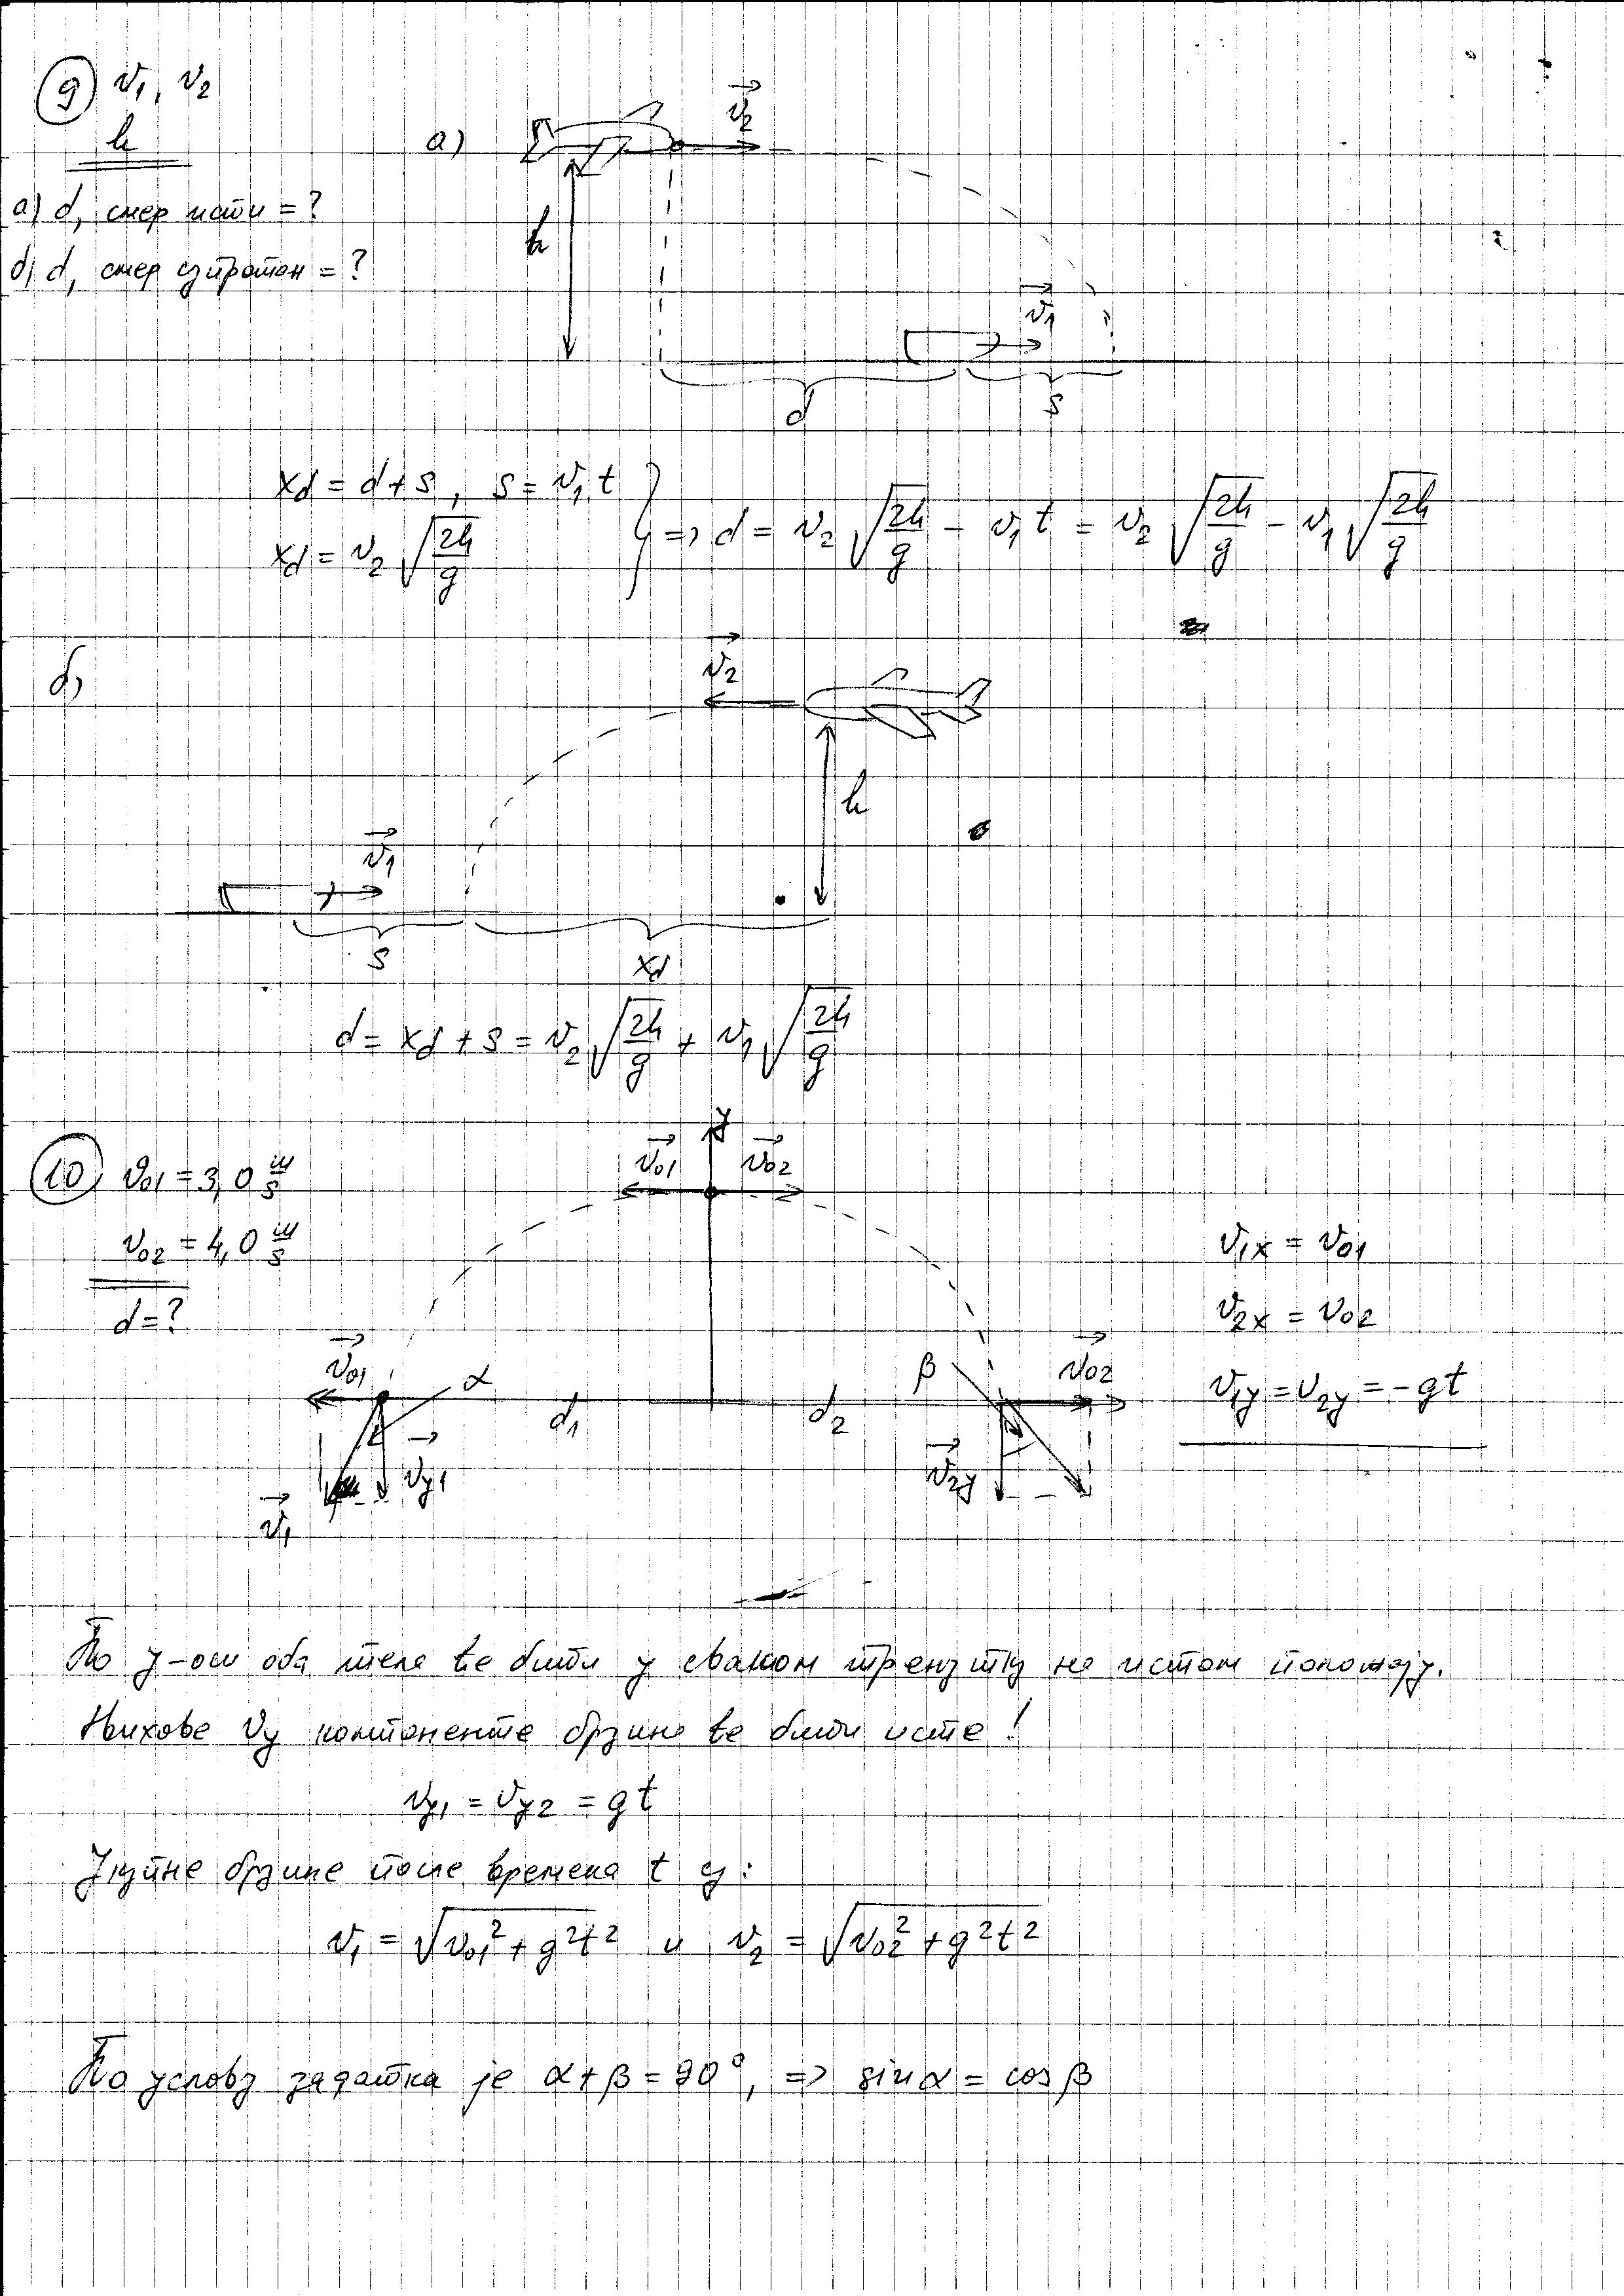 9) v₁, v₂
h
a) d, смер исти = ?
б) d, смер супротан = ?
a) v₂
h
v₁
d
s
x_d = d + s, s = v₁ t
x_d = v₂ √(2h/g)
=> d = v₂ √(2h/g) - v₁ t = v₂ √(2h/g) - v₁ √(2h/g)
б)
v₂
h
v₁
s
x_d
d = x_d + s = v₂ √(2h/g) + v₁ √(2h/g)
10) v₀₁ = 3,0 m/s
v₀₂ = 4,0 m/s
d = ?
y
v₀₁ v₀₂
v₀₁ α
d₁ d₂
β v₀₂
v_y1 v₂y
v₁
v₁x = v₀₁
v₂x = v₀₂
v₁y = v₂y = -gt
По y-оси оба тела ће бити у сваком тренутку на истом положају.
Њихове v_y компоненте брзине ће бити исте!
v_y1 = v_y2 = gt
Укупне брзине после времена t су:
v₁ = √(v₀₁² + g²t²) и v₂ = √(v₀₂² + g²t²)
По услову задатка је α + β = 90°, => sin α = cos β